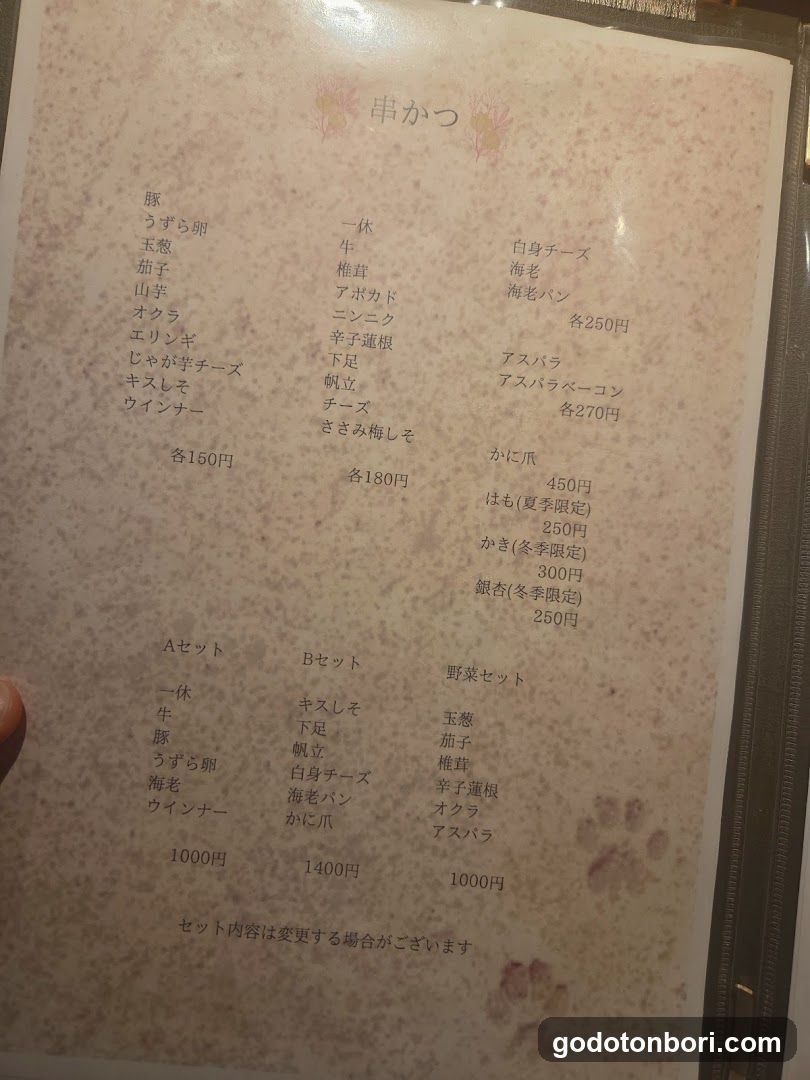 串かつ
豚
うずら卵
玉葱
茄子
山芋
オクラ
エリンギ
じゃが芋チーズ
キスしそ
ウインナー
各150円
一休
牛
椎茸
アボカド
ニンニク
辛子蓮根
下足
帆立
チーズ
ささみ梅しそ
各180円
白身チーズ
海老
海老パン
各250円
アスパラ
アスパラベーコン
各270円
かに爪
450円
はも(夏季限定)
250円
かき(冬季限定)
300円
銀杏(冬季限定)
250円
Aセット
一休
牛
豚
うずら卵
海老
ウインナー
1000円
Bセット
キスしそ
下足
帆立
白身チーズ
海老パン
かに爪
1400円
野菜セット
玉葱
茄子
椎茸
辛子蓮根
オクラ
アスパラ
1000円
セット内容は変更する場合がございます
godotonbori.com